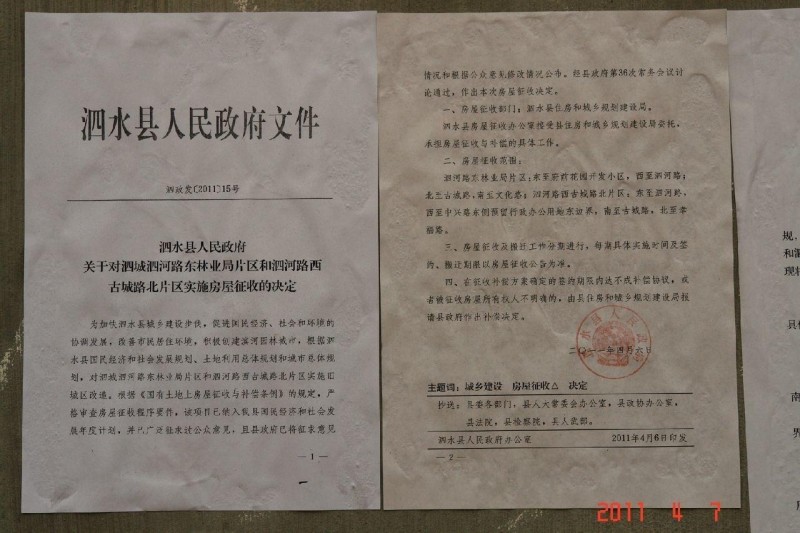 泗水县人民政府文件
泗政发〔2011〕15号
泗水县人民政府
关于对泗城泗河路东林业局片区和泗河路西
古城路北片区实施房屋征收的决定
为加快泗水县城乡建设步伐，促进国民经济、社会和环境的
协调发展，改善市民居住环境，积极创建滨河园林城市，根据泗
水县国民经济和社会发展规划、土地利用总体规划和城市总体规
划，对泗城泗河路东林业局片区和泗河路西古城路北片区实施旧
城区改造。根据《国有土地上房屋征收与补偿条例》的规定，严
格审查房屋征收程序要件，该项目已纳入我县国民经济和社会发
展年度计划，并已广泛征求过公众意见，且县政府已将征求意见
—1—
情况和根据公众意见修改情况公布。经县政府第36次常务会议讨
论通过，作出本次房屋征收决定。
一、房屋征收部门：泗水县住房和城乡规划建设局。
泗水县房屋征收办公室接受县住房和城乡规划建设局委托，
承担房屋征收与补偿的具体工作。
二、房屋征收范围：
泗河路东林业局片区：东至府前花园开发小区，西至泗河路；
北至古城路，南至文化路；泗河路西古城路北片区：东至泗河路，
西至中兴路东侧预留行政办公用地东边界，南至古城路，北至幸
福路。
三、房屋征收及搬迁工作分期进行，每期具体实施时间及签
约、搬迁期限以房屋征收公告为准。
四、在征收补偿方案确定的签约期限内达不成补偿协议，或
者被征收房屋所有权人不明确的，由县住房和城乡规划建设局报
请县政府作出补偿决定。
二〇一一年四月六日
主题词：城乡建设 房屋征收△ 决定
抄送：县委各部门，县人大常委会办公室，县政协办公室，
县法院，县检察院，县人武部。
泗水县人民政府办公室 2011年4月6日印发
—2—
规，
和泗
现
具
南
界
2011 4 7